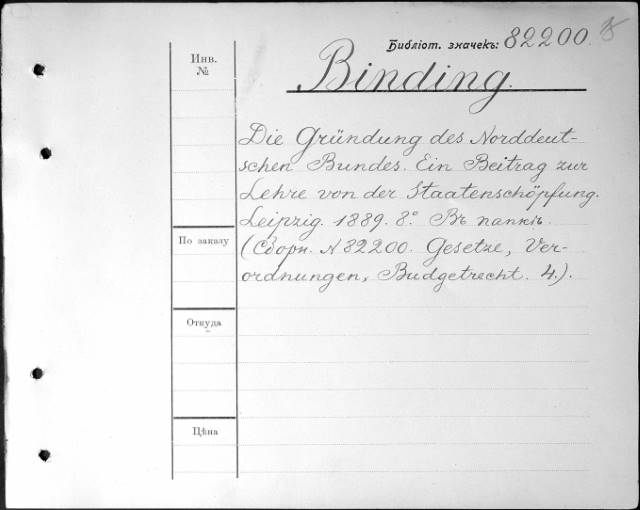 Библіот. значекъ: 82200.
Инв. №
Binding.
Die Gründung des Norddeut-
schen Bundes. Ein Beitrag zur
Lehre von der Staatenschöpfung.
Leipzig. 1889. 8º. Въ папкѣ.
(Сборн. № 82200. Gesetze, Ver-
ordnungen, Budgetrecht. 4.).
По заказу
Откуда
Цѣна